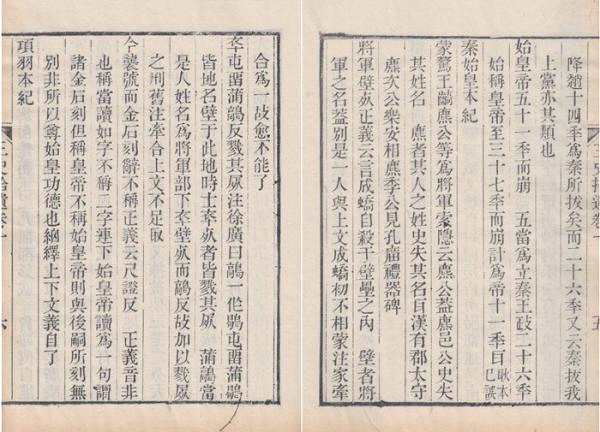 降趙十四秊為秦所拔矣而二十六秊又云秦拔我
上黨亦其類也
始皇帝五十一秊而崩 五當為立秦王政二十六秊
始稱皇帝至三十七秊而崩計為帝十一秊耳耿本已誤
秦始皇本紀
蒙驁王齮麃公等為將軍索隱云麃公葢麃邑公史失
其姓名 麃者其人之姓史失其名耳漢有郡太守
麃次公樂安相麃季公見孔廟禮器碑
將軍壁死正義云言成蟜自殺于壁壘之內 壁者將
軍之名葢別是一人與上文成蟜初不相蒙注家牽
五
合為一故愈不能了
卒屯畱蒲鶮反戮其屍注徐廣曰鶮一作鶮屯畱蒲鶮
皆地名壁于此地時士卒死者皆戮其屍 蒲鶮當
是人姓名為將軍部下卒壁死而鶮反故加以戮屍
之刑舊注牽合上文不足取
今襲號而金石刻辭不稱正義云尺證反 正義音非
也稱當讀如字不稱二字連下始皇帝讀為一句謂
諸金石刻但稱皇帝不稱始皇帝則與後嗣所刻無
別非所以尊始皇功德也紬繹上下文義自了
項羽本紀
三史拾遺卷一
六